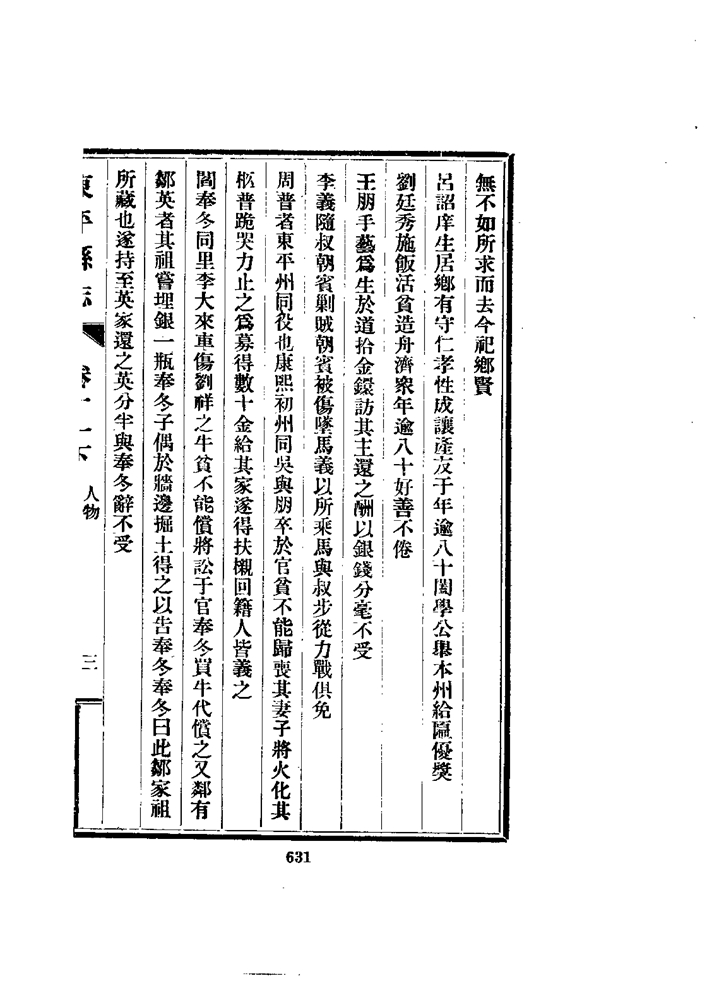 無不如所求而去今祀鄉賢
呂詔庠生居鄉有守仁孝性成讓產友于年逾八十闔學公舉本州給匾優獎
劉廷秀施飯活貧造舟濟衆年逾八十好善不倦
王朋手藝爲生於道拾金鐶訪其主還之酬以銀錢分毫不受
李義隨叔朝賓剿賊朝賓被傷墜馬義以所乘馬與叔步從力戰俱免
周普者東平州同役也康熙初州同吳與朋卒於官貧不能歸喪其妻子將火化其
柩普跪哭力止之爲募得數十金給其家遂得扶櫬回籍人皆義之
閻奉冬同里李大來車傷劉祥之牛貧不能償將訟于官奉冬買牛代償之又鄰有
鄒英者其祖嘗埋銀一瓶奉冬子偶於牆邊掘土得之以告奉冬奉冬曰此鄒家祖
所藏也遂持至英家還之英分半與奉冬辭不受
東平縣志 卷十一下 人物 三
631